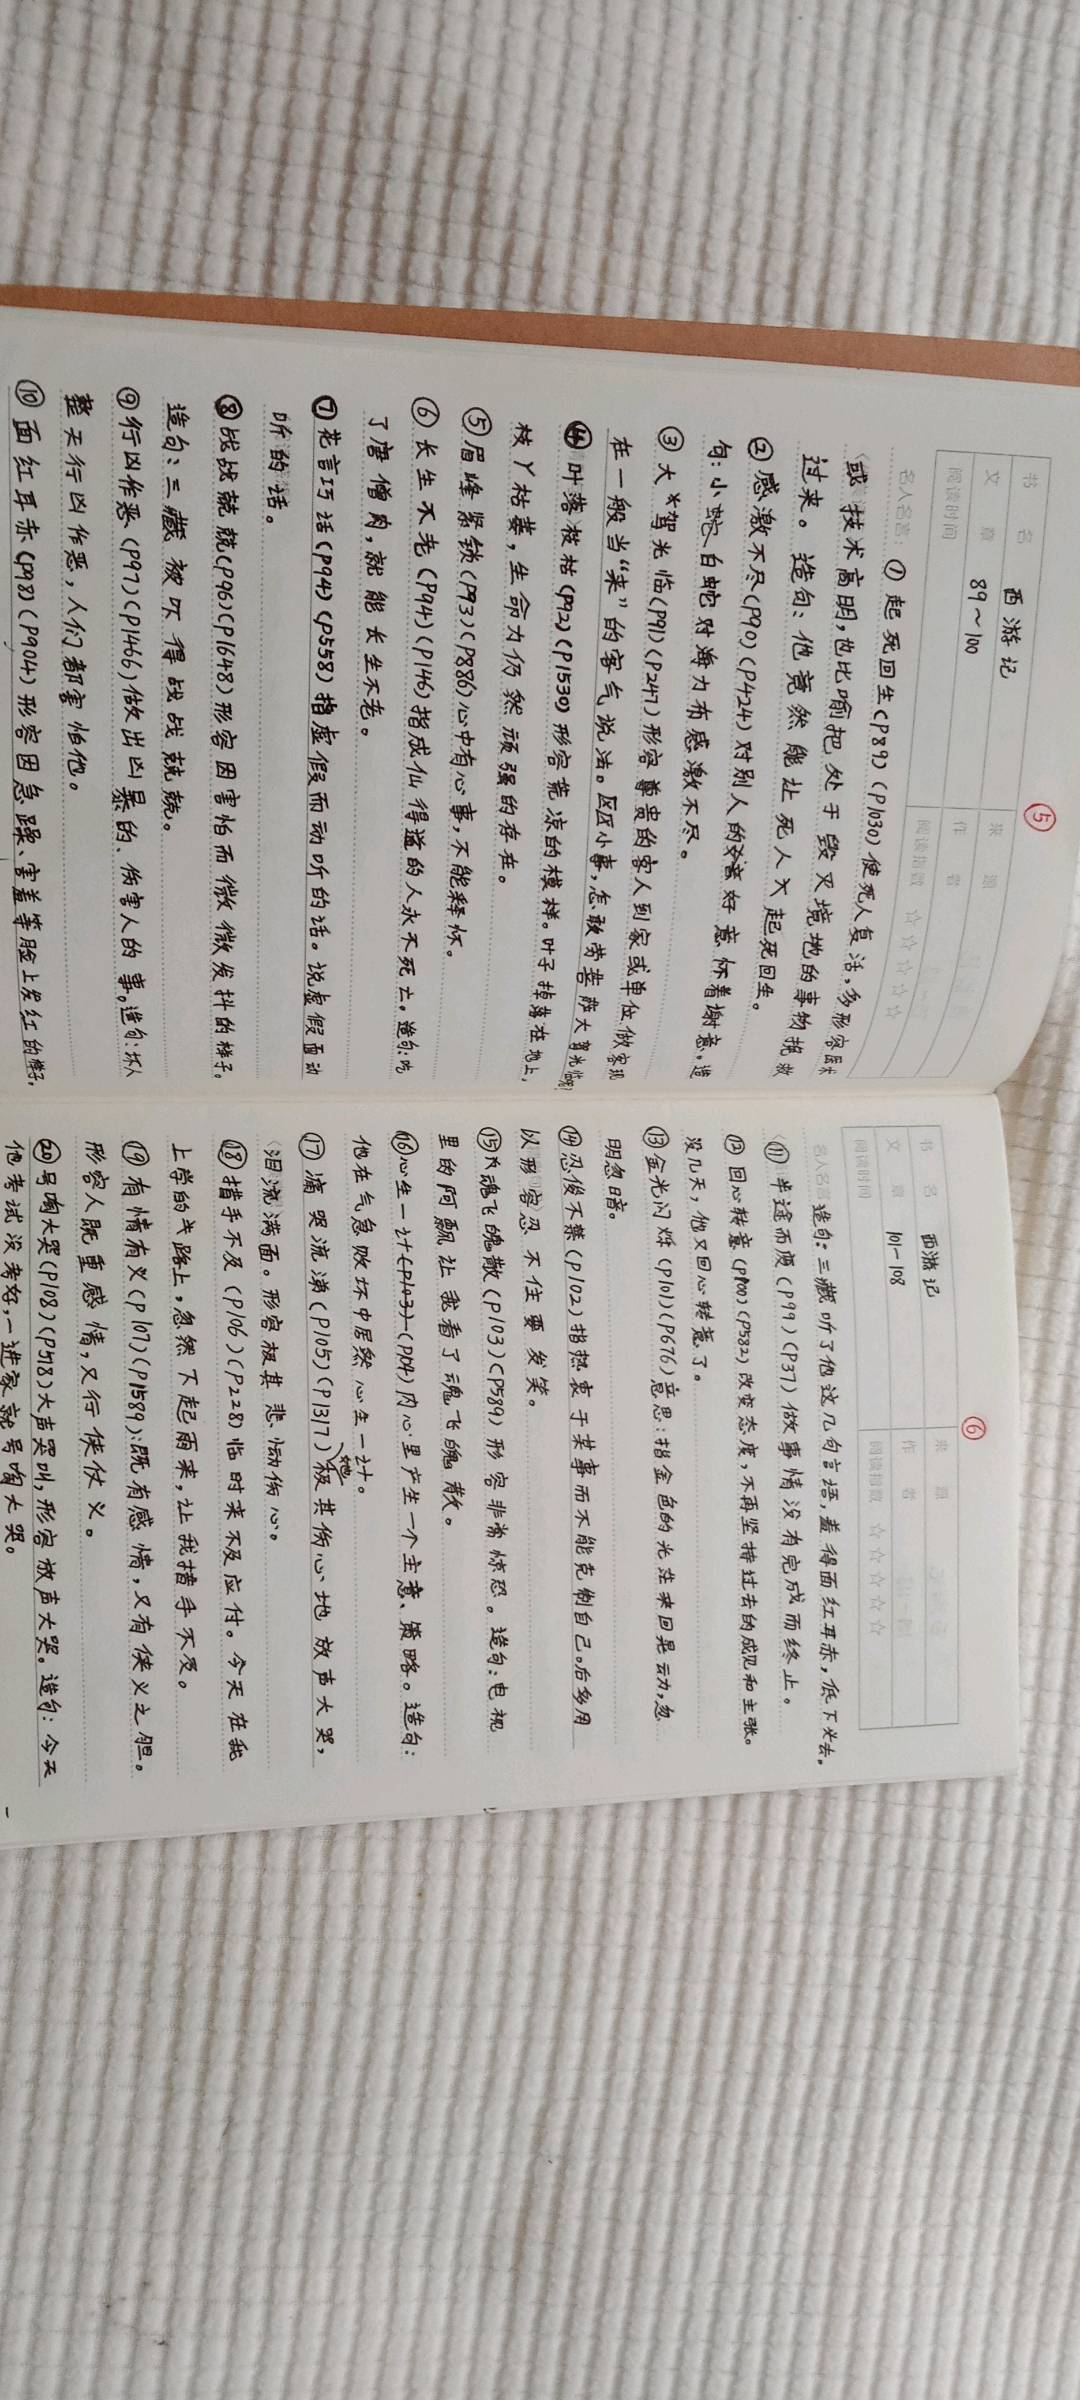 ⑤
书 名 西游记 来 源
文 章 89~100 作 者
阅读时间 阅读指数 ☆☆☆☆☆
名人名言: ①起死回生(P89)(P1030)使死人复活,多形容医术
或技术高明,也比喻把处于毁灭境地的事物挽救
过来。造句:他竟然能让死人起死回生。
②感激不尽(P90)(P424)对别人的好意怀着谢意。造
句:小蛇白蛇对海力布感激不尽。
③大驾光临(P91)(P247)形容尊贵的客人到家或单位做客现
在一般当“来”的客气说法。区区小事,怎敢劳菩萨大驾光临呢?
④叶落枝枯(P92)(P1530)形容荒凉的模样。叶子掉落在地上,
枝丫枯萎,生命力仍然顽强的存在。
⑤眉峰紧锁(P93)(P886)心中有心事,不能释怀。
⑥长生不老(P94)(P146)指成仙得道的人永不死亡。造句:吃
了唐僧肉,就能长生不老。
⑦花言巧话(P94)(P558)指虚假而动听的话。说虚假面动
听的话。
⑧战战兢兢(P96)(P1648)形容因害怕而微微发抖的样子。
造句:三藏被吓得战战兢兢。
⑨行凶作恶(P97)(P1466)做出凶暴的、伤害人的事。造句:坏人
整天行凶作恶,人们都害怕他。
⑩面红耳赤(P98)(P904)形容因急躁、害羞等脸上发红的样子。
⑥
书 名 西游记 来 源
文 章 101-108 作 者
阅读时间 阅读指数 ☆☆☆☆☆
名人名言 造句:三藏听了他这几句言语,羞得面红耳赤,低下头去。
⑪半途而废(P99)(P37)做事情没有完成而终止。
⑫回心转意(P100)(P582)改变态度,不再坚持过去的成见和主张。
没几天,他又回心转意了。
⑬金光闪烁(P101)(P676)意思:指金色的光芒来回晃动,忽
明忽暗。
⑭忍俊不禁(P102)指热衷于某事而不能克制自己。后多用
以形容忍不住要发笑。
⑮魂飞魄散(P103)(P589)形容非常惊恐。造句:电视
里的阿飘让我看了魂飞魄散。
⑯心生一计(P143)(P104)内心里产生一个主意、策略。造句:
他在气急败坏中居然心生一计。
⑰痛哭流涕(P105)(P1317)她极其伤心地放声大哭,
泪流满面。形容极其悲恸伤心。
⑱措手不及(P106)(P228)临时来不及应付。今天在我
上学的半路上,忽然下起雨来,让我措手不及。
⑲有情有义(P107)(P1589):既有感情,又有侠义之胆。
形容人既重感情,又行侠仗义。
⑳号啕大哭(P108)(P518)大声哭叫,形容放声大哭。造句:今天
他考试没考好,一进家就号啕大哭。